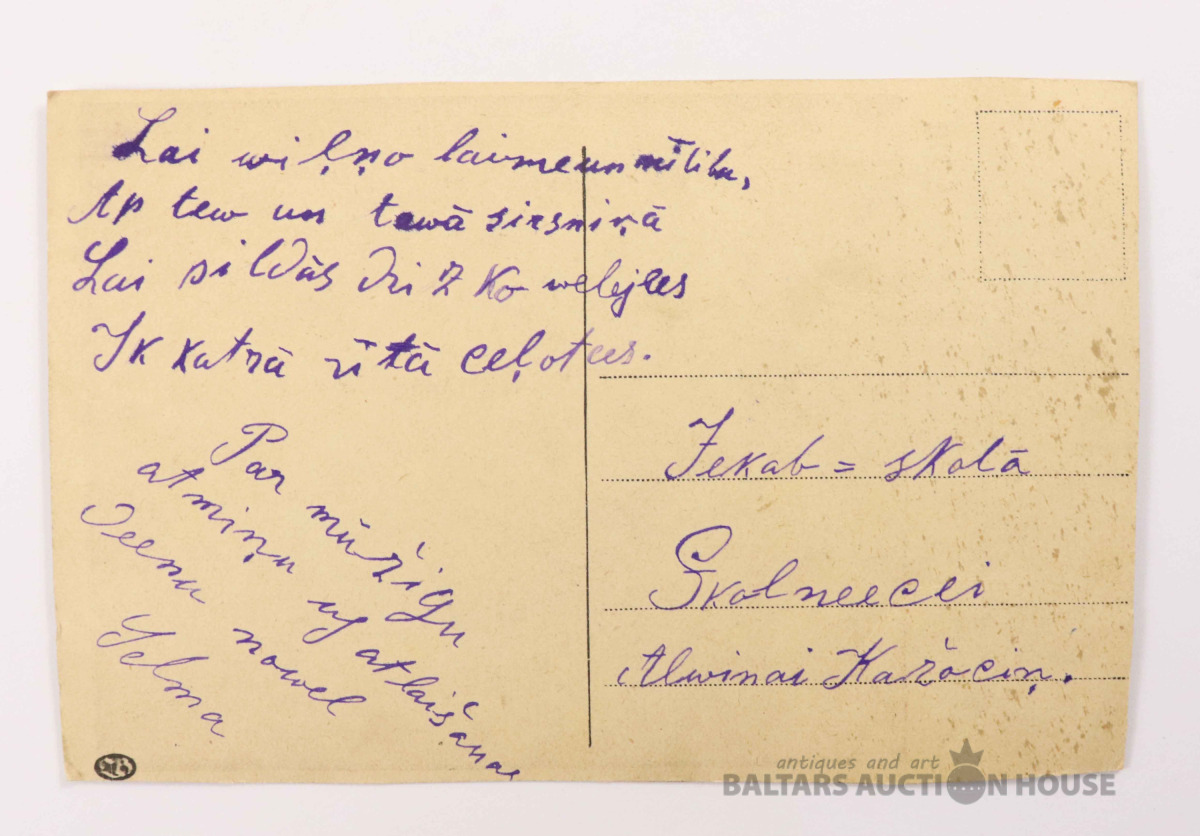 Lai wiļņo laime un mīliba,
Ap tew un tewā sirsniņā
Lai sildās drīz ko welejees
Ik katrā rītā ceļotees.
Par mūžigu
atmiņu uz atlaišanas
Deenu nowel
Selma
Jekab = skolā
Skolneecei
Alwinai Kažociņ.
antiques and art
BALTARS AUCTION HOUSE